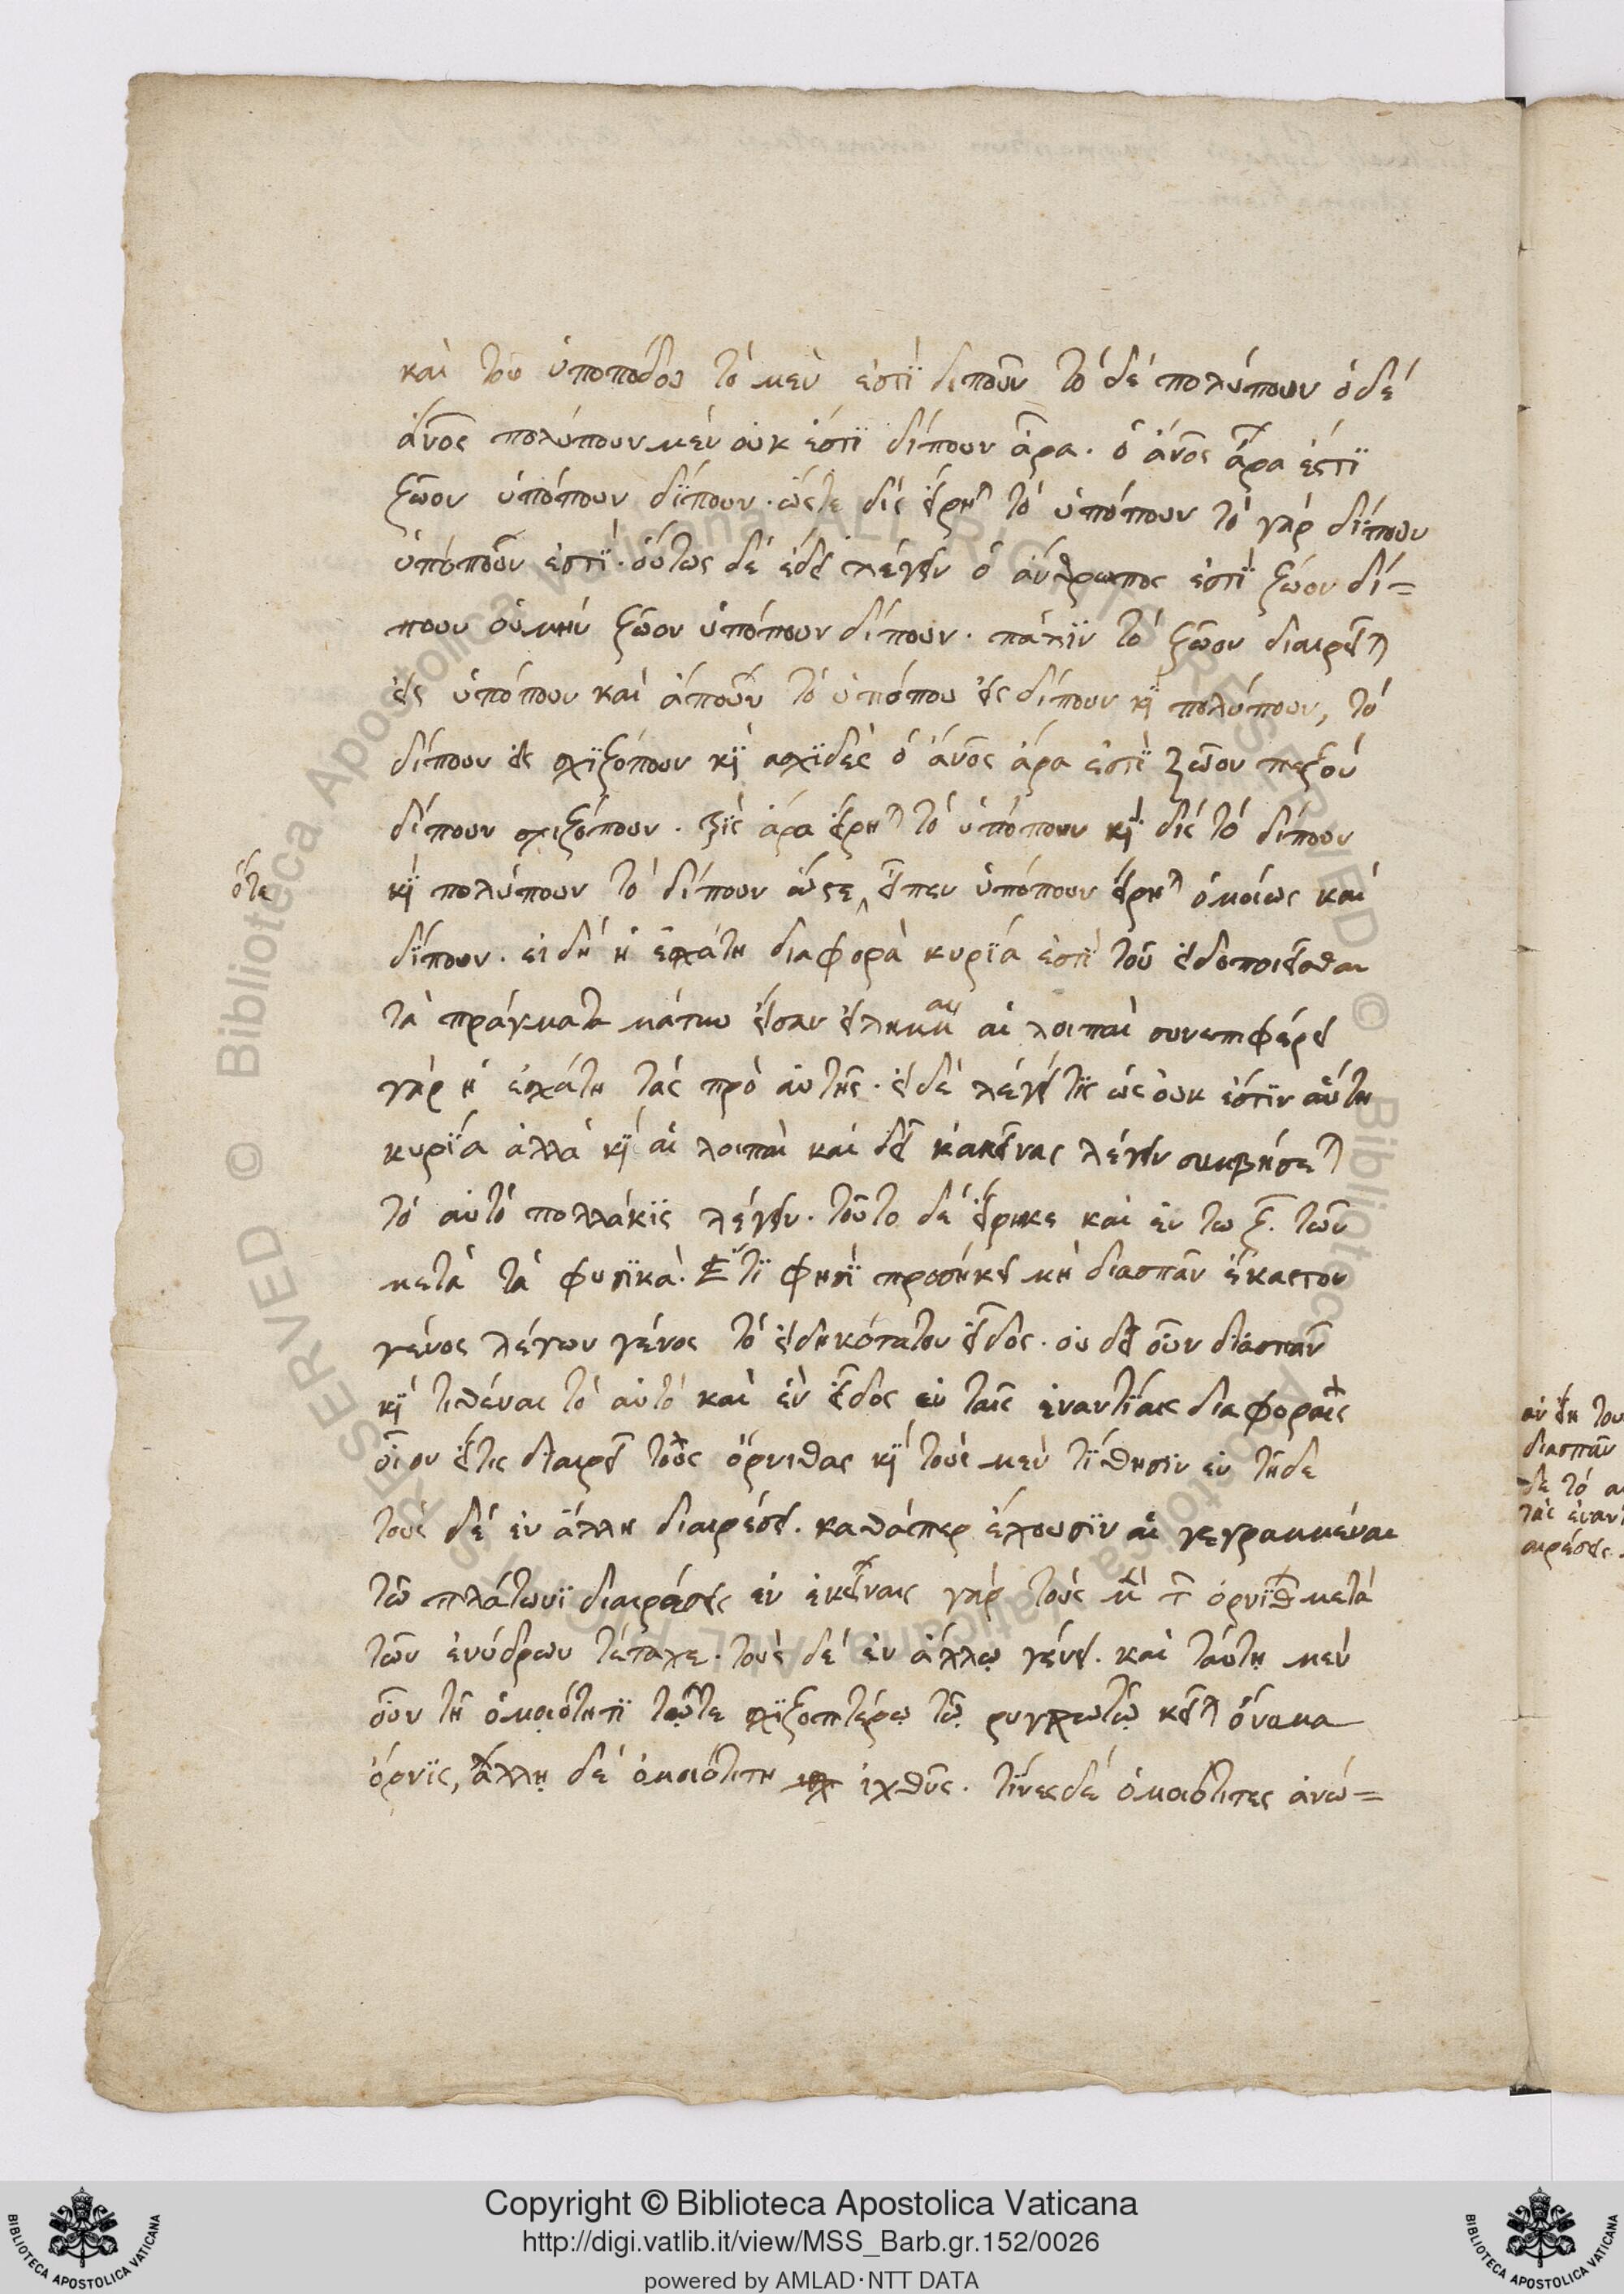 καὶ τοῦ ὑποπόδου τὸ μὲν ἐστὶ δίπουν τὸ δὲ πολύπουν ὁ δὲ
ἄνος πολύπουν μὲν οὐκ ἐστὶ δίπουν ἄρα. ὁ ἄνος ἄρα ἐστὶ
ζῶον ὑπόπουν δίπουν. ὥστε δὶς εἴρη τὸ ὑπόπουν τὸ γὰρ δίπουν
ὑπόπουν ἐστὶ. οὕτως δὲ ἔδει λέγειν ὁ ἄνθρωπος ἐστὶ ζῶον δί=
πουν οὐ μὴν ζῶον ὑπόπουν δίπουν. πάλιν τὸ ζῶον διαιρεῖ
εἰς ὑπόπουν καὶ ἄπουν τὸ ὑπόπου εἰς δίπουν κ πολύπουν, τὸ
δίπουν εἰς σχιζόπουν κ ασχιδὲς ὁ ἄνος ἄρα ἐστὶ ζῶον πεζὸν
δίπουν σχιζόπουν. τρὶς ἄρα εἴρη τὸ ὑπόπουν κ δὶς τὸ δίπουν
ὅτε
κ πολύπουν τὸ δίπουν ὥστε εἶπεν ὑπόπουν εἴρη ὁμοίως καὶ
δίπουν. εἰ δὴ ἡ ἐσχάτη διαφορὰ κυρία ἐστὶ τοῦ εἰδοποιεῖσθαι
τὰ πράγματα μάτην εἰλημμαι αἱ λοιπαὶ συνεπιφέρει
γὰρ ἡ ἐσχάτη τὰς πρὸ αὐτῆς. εἰ δὲ λέγει τις ὡς οὐκ ἐστὶν αὕτη
κυρία ἀλλὰ κ αἱ λοιπαὶ καὶ δεῖ κἀκείνας λέγειν συμβήσε
τὸ αὐτὸ πολλάκις λέγειν. τοῦτο δὲ εἴρηκε καὶ ἐν τω ζ. τῶν
μετὰ τὰ φυσικὰ. Ἔτι φησὶ προσήκει μὴ διασπᾶν ἕκαστον
γένος λέγων γένος τὸ εἰδηκότατον εἶδος. οὐ δεῖ οὖν διασπᾶν
κ τιθέναι τὸ αὐτὸ καὶ ἓν εἶδος ἐν ταῖς ἐναντίαις διαφοραῖς
οἷον εἴ τις διαιρεῖ τοὺς ὄρνιθας κ τοὺς μὲν τίθησιν ἐν τῇδε
τοὺς δὲ ἐν ἄλλη διαιρέσει. καθάπερ ἔχουσιν αἱ γεγραμμέναι
τῶ πλάτωνι διαιρέσεις ἐν ἐκείναις γὰρ τοὺς μ τ ὀρνιθ μετὰ
τῶν ἐνύδρων τέταχε. τοὺς δὲ ἐν ἄλλῳ γένει. καὶ ταύτῃ μὲν
οὖν τῆ ὁμοιότητι τῷτε σχιζοπτέρῳ τῷ ρυγχωτῷ κεῖ ὄνομα
ὄρνις, ἄλλῃ δὲ ὁμοιότιτη ἰχθῦς. τίνες δὲ ὁμοιότιτες ἀνώ=
αν εἴη του
διασπᾶν
δε τὸ α
ταῖς ἐναν
αιρέσεις.
Copyright © Biblioteca Apostolica Vaticana
http://digi.vatlib.it/view/MSS_Barb.gr.152/0026
powered by AMLAD·NTT DATA